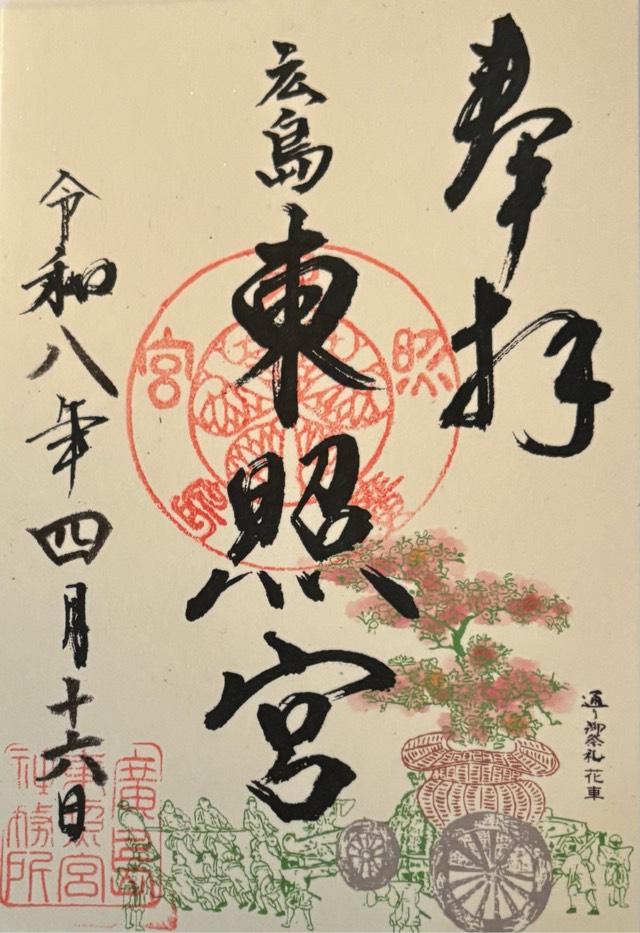 奉拝
広島
東照宮
令和八年四月十六日
通り御祭礼 花車
廣島
東照宮
社務所